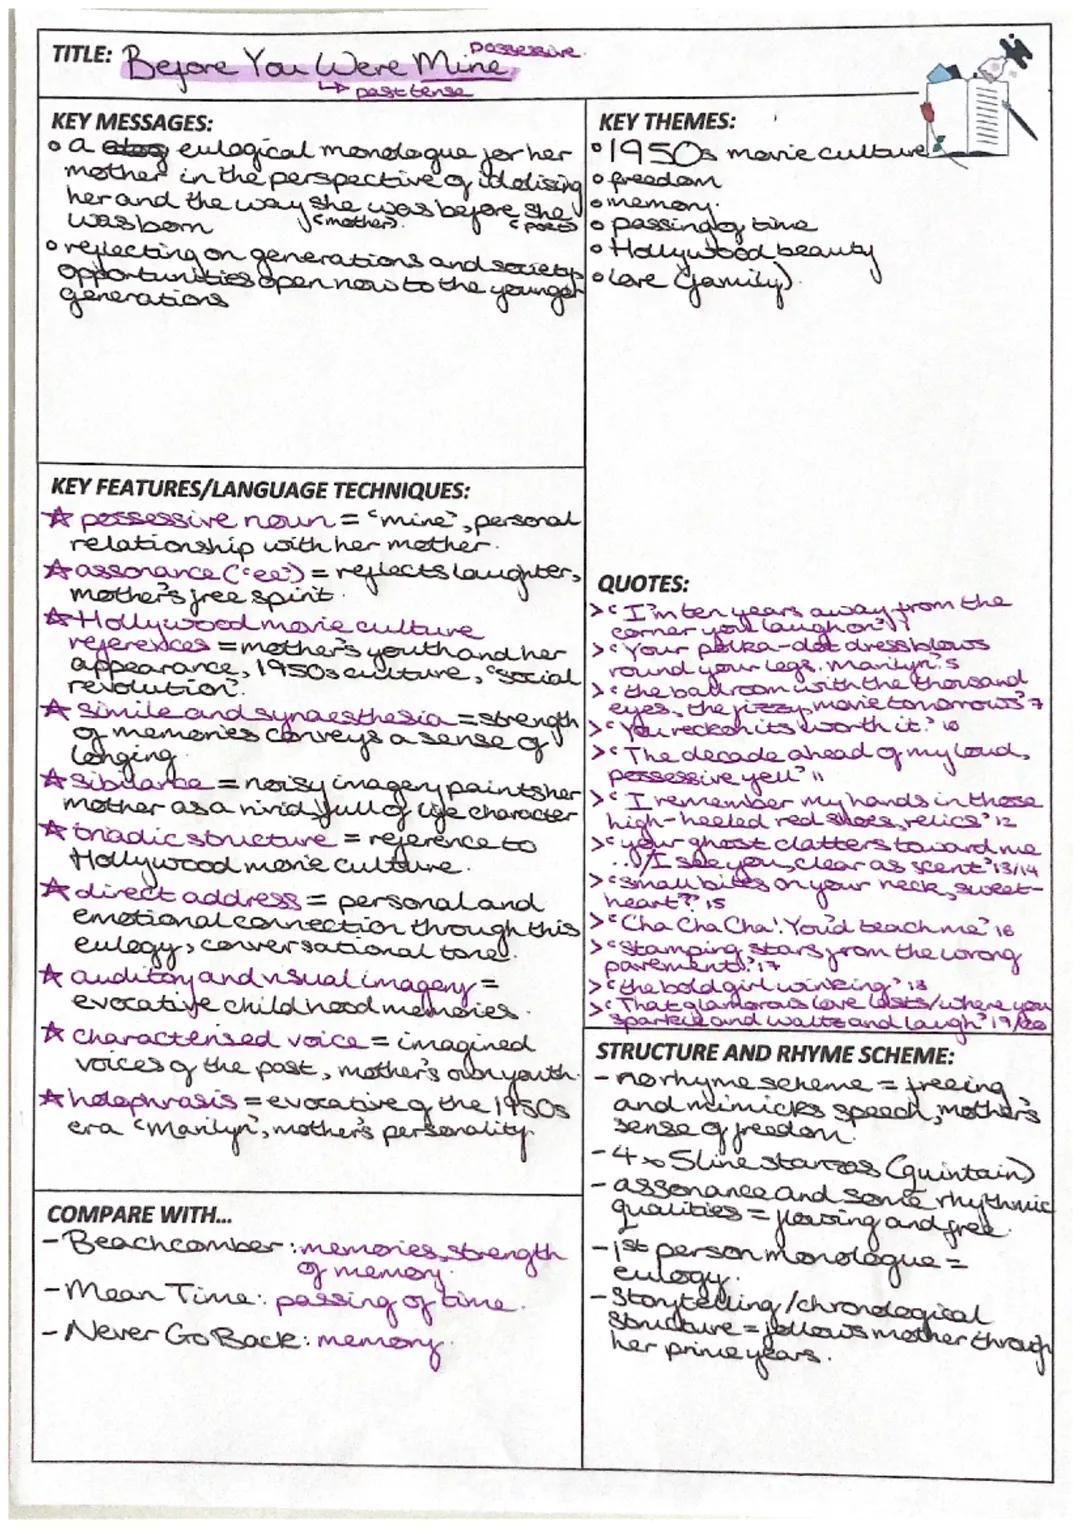 TITLE: Before You Were Mine
possessive.
↳ past tense
KEY MESSAGES:
• a eulogical monologue for her
mother in the perspective of idolising
her and the way she was before she
was born (mother). (poet)
• reflecting on generations and society
opportunities open now to the younger
generations
KEY THEMES:
• 1950s movie culture
• freedom
• memory.
• passing of time
• Hollywood beauty
• love (family).
KEY FEATURES/LANGUAGE TECHNIQUES:
☆ possessive noun = 'mine', personal
relationship with her mother.
☆ assonance ('ee') = reflects laughter,
mother's free spirit.
☆ Hollywood movie culture
references = mother's youth and her
appearance, 1950s culture, 'social
revolution'.
☆ simile and synaesthesia = strength
of memories conveys a sense of
longing.
☆ sibilance = noisy imagery paints her
mother as a vivid full of life character
☆ triadic structure = reference to
Hollywood movie culture.
☆ direct address = personal and
emotional connection through this
eulogy, conversational tone.
☆ auditory and visual imagery =
evocative childhood memories.
☆ characterised voice = imagined
voices of the past, mother's own youth.
☆ holophrasis = evocative of the 1950s
era 'Marilyn', mother's personality.
QUOTES:
> 'I'm ten years away from the
corner you laugh on' 1
> 'Your polka-dot dress blows
round your legs. Marilyn.' 5
> 'the ballroom with the thousand
eyes, the fizzy, movie tomorrows' 7
> 'You reckon its worth it.' 10
> 'The decade ahead of my loud,
possessive yell' 11
> 'I remember my hands in those
high-heeled red shoes, relics' 12
> 'your ghost clatters toward me
.. / I see you, clear as scent' 13/14
> 'small bites on your neck, sweet-
heart?' 15
> 'Cha Cha Cha! You'd teach me' 16
> 'stamping stars from the wrong
pavement.' 17
> 'the bold girl winking' 18
> 'That glamorous love lasts/where you
sparkle and waltz and laugh' 19/20
STRUCTURE AND RHYME SCHEME:
- no rhyme scheme = freeing
and mimicks speech, mother's
sense of freedom.
- 4 x 5 line stanzas (quintain)
- assonance and some rhythmic
qualities = flowing and free.
- 1st person monologue =
eulogy.
- storytelling/chronological
structure = follows mother through
her prime years.
COMPARE WITH...
- Beachcomber: memories, strength
of memory.
- Mean Time: passing of time.
- Never Go Back: memory.